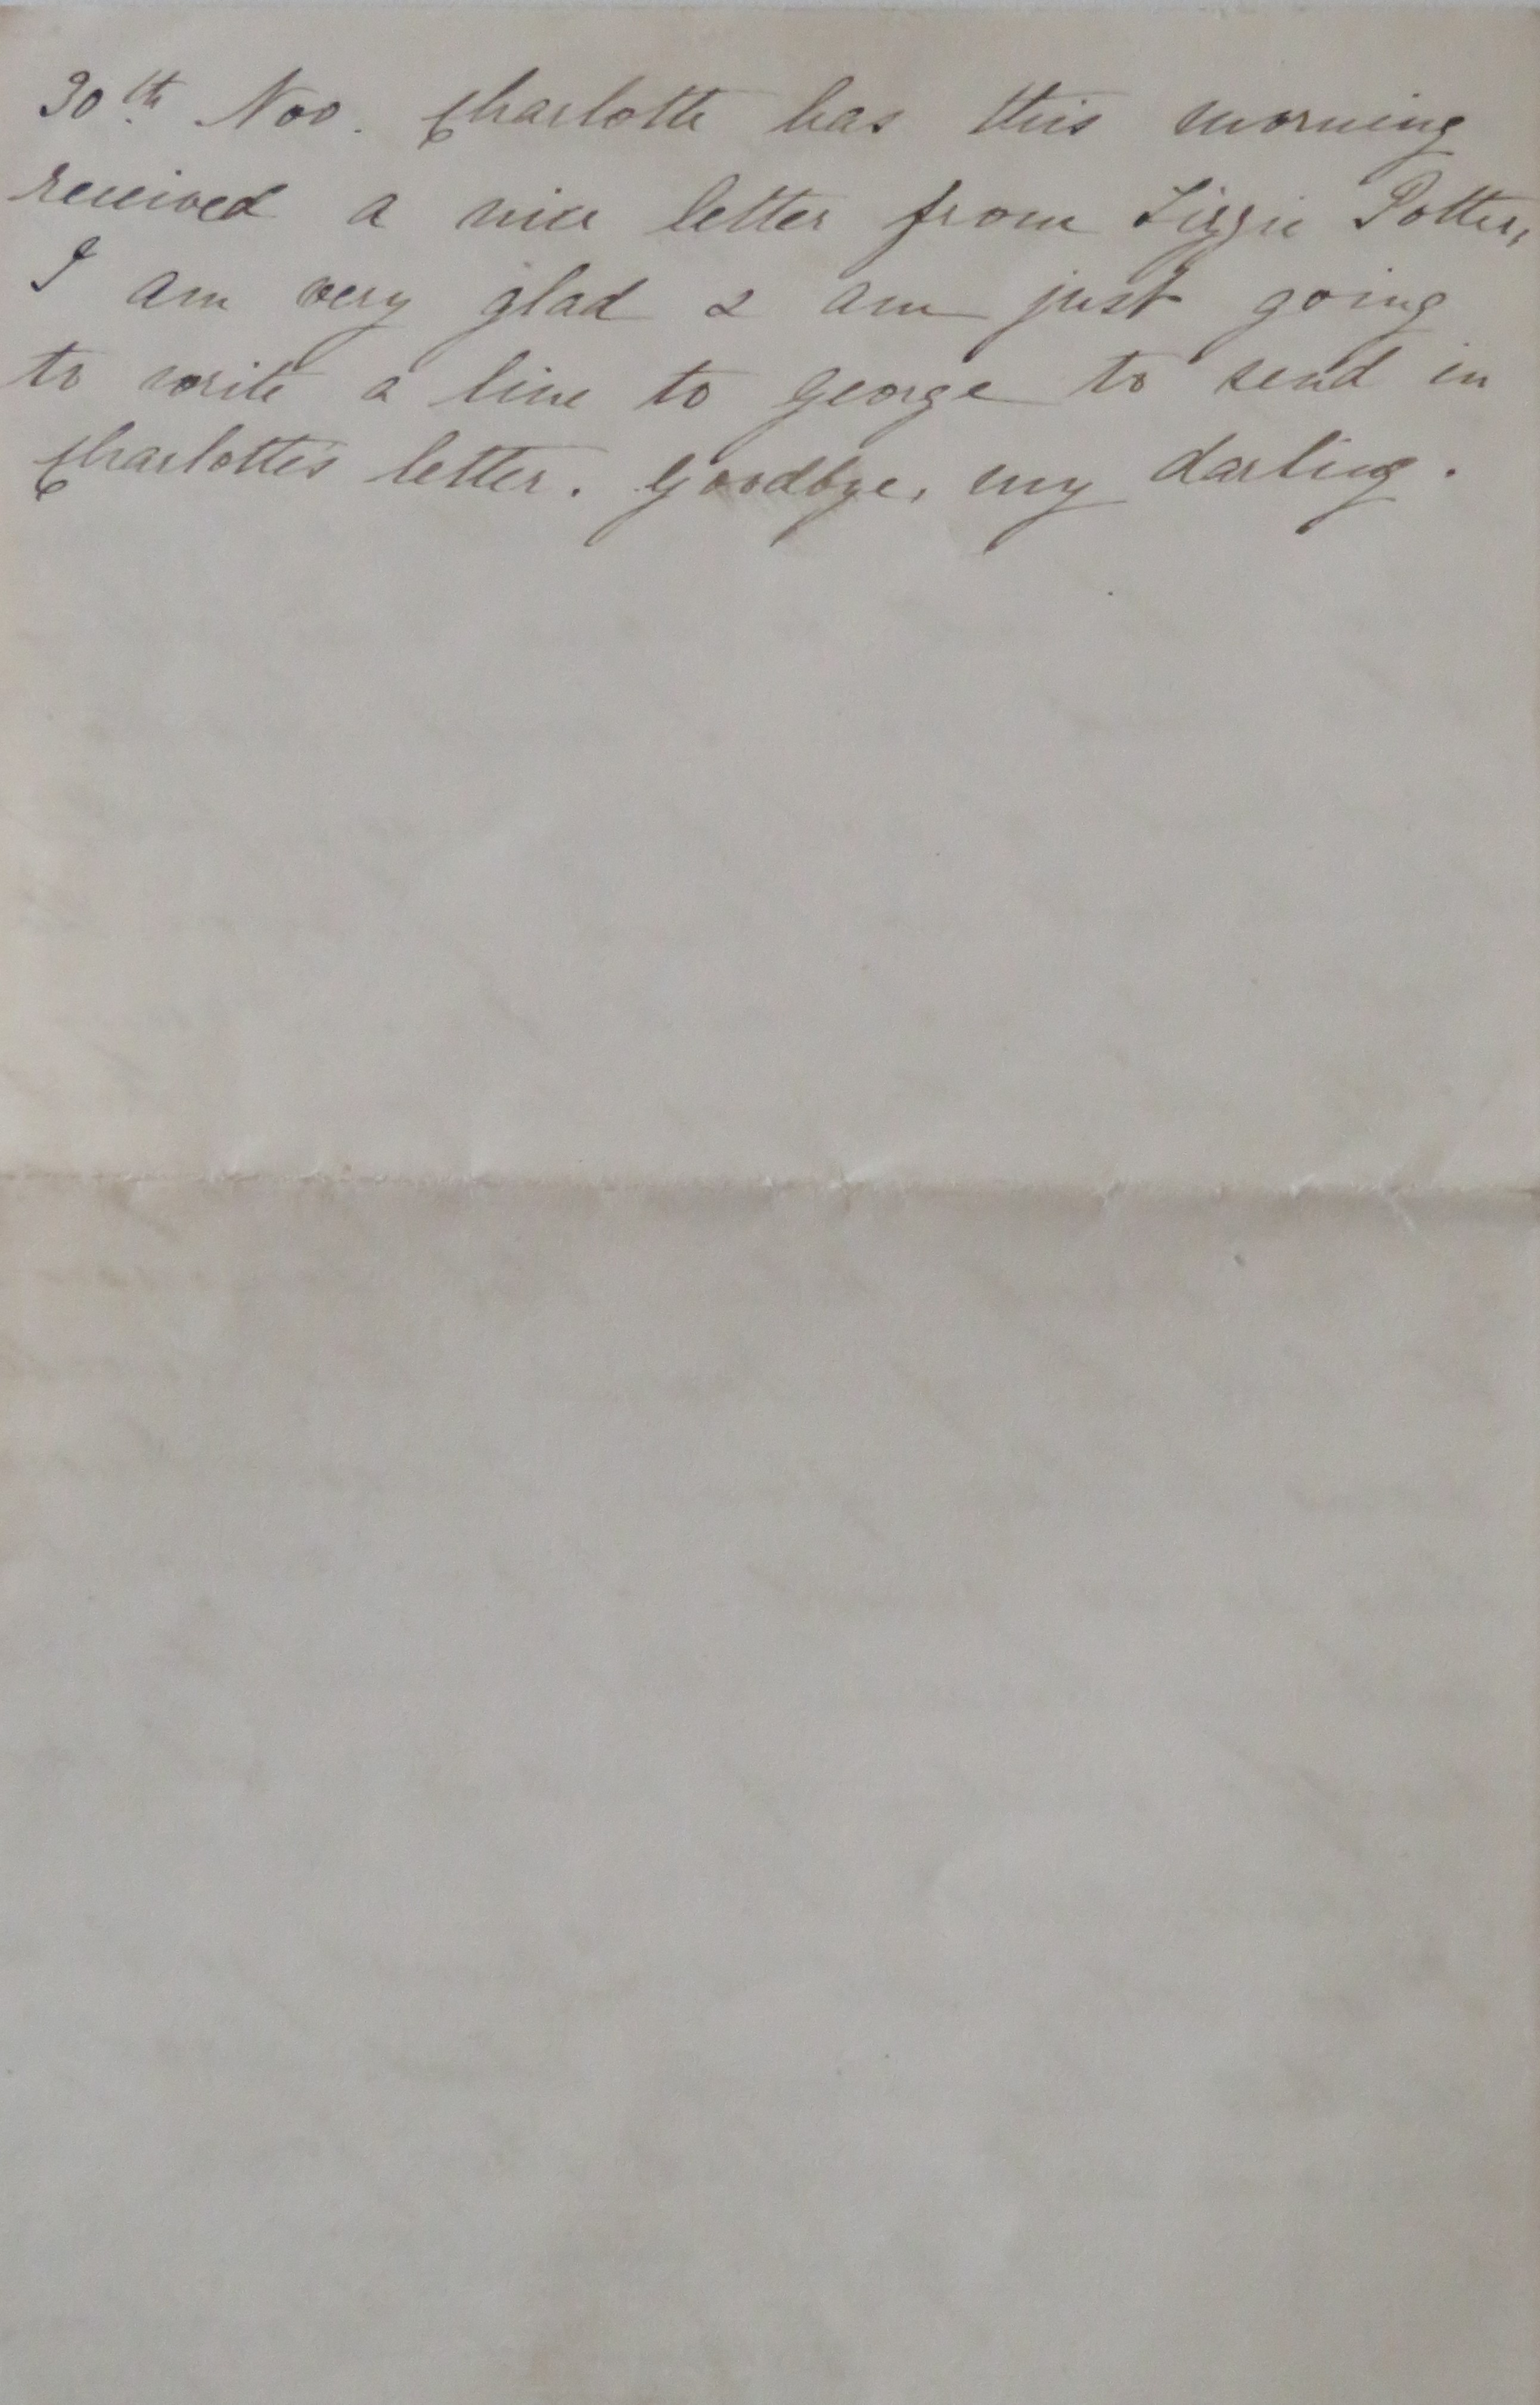 30th Nov. Charlotte has this morning
received a nice letter from Lizzie Potter,
I am very glad & am just going
to write a line to George to send in
Charlotte's letter. Goodbye, my darling.